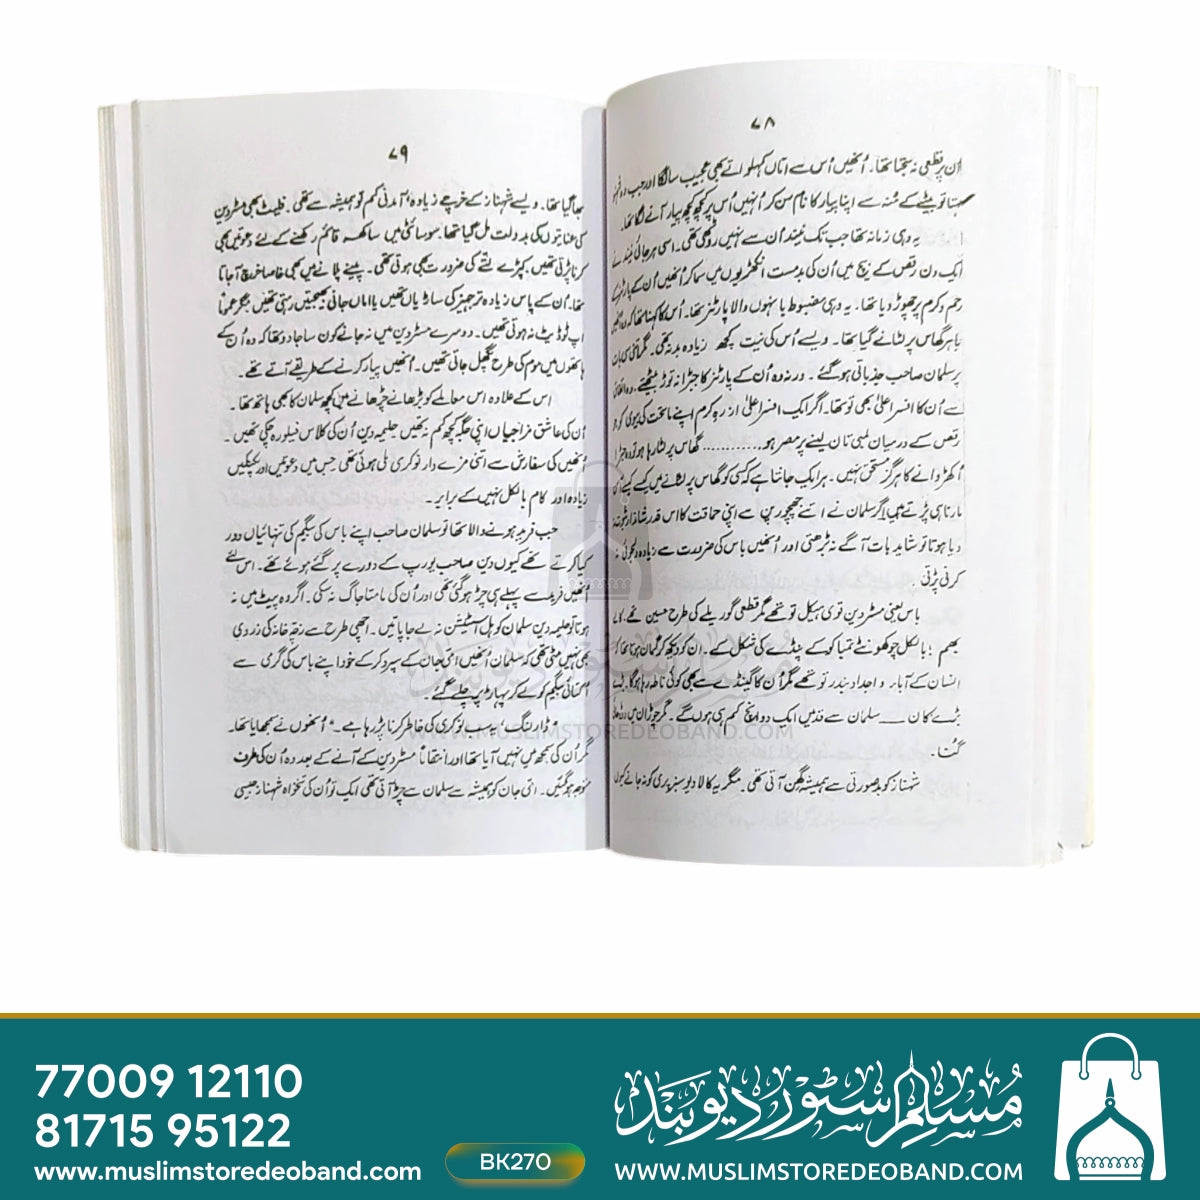 ۷۸
ان پر قطعی نہ سجتا تھا۔ اُنھیں اُس سے اتاں کہلواتے بھی عجیب سا لگتا اور جب وہ
تو بیٹے کے مُنہ سے اپنا پیار کا نام سن کر اُنہیں اُس پر کچھ کچھ پیار آنے لگا تھا۔
یہ وہی زمانہ تھا جب تک نیند اُن سے نہیں روٹھی تھی۔ اسی ہرجائی نیند نے
ایک دن رقص کے بیچ میں اُن کی بدمست انکھڑیوں میں سما کر اُنھیں اُن کے پارٹنر کے
رحم و کرم پر چھوڑ دیا تھا۔ یہ وہی مضبوط بانہوں والا پارٹنر تھا۔ اُس کا کہنا تھا کہ وہ اُنھیں
باہر گھاس پر لٹانے گیا تھا۔ ویسے اُس کی نیت کچھ زیادہ بد نہ تھی۔ مگر اتنی سی بات
پر سلمان صاحب جذباتی ہو گئے۔ ورنہ وہ اُن کے پارٹنر کا جبڑا نہ توڑ بیٹھتے۔ وہ اتفاق
سے اُن کا افسر اعلیٰ بھی تو تھا۔ اگر ایک افسر اعلیٰ از رہِ کرم اپنے ماتحت کی بیوی کو جو
رقص کے درمیان لمبی تان لینے پر مصر ہو ............ گھاس پر لٹا رہا ہو تو وہ جبڑا
اُکھڑوانے کا ہرگز مستحق نہیں۔ ہر ایک جانتا ہے کہ کسی کو گھاس پر لٹانے میں کیسے کیسے اُس کی
مارنا ہی پڑتے ہیں اگر سلمان نے اتنے چھچھورپن سے اپنی حماقت کا اس قدر شاندار ثبوت نہ
دیا ہوتا تو شاید بات آگے نہ بڑھتی اور اُنھیں باس کی ضرورت سے زیادہ دلجوئی نہ
کرنی پڑتی۔
باس یعنی مسٹر دین قوی ہیکل تو تھے مگر قطعی گوریلے کی طرح حسین تھے۔ کالے
بھجم، بالکل چوکھونٹے تمباکو کے پنڈے کی شکل کے۔ ان کو دیکھ کر گمان ہوتا تھا کہ
انسان کے آباء و اجداد بندر تو تھے مگر اُن کا گینڈے سے بھی کوئی ناطہ رہا ہوگا۔
بڑے کان ـــــ سلمان سے قد میں ایک دو انچ کم ہی ہوں گے۔ مگر چوڑان میں
گنا۔
شہناز کو بدصورتی سے ہمیشہ گھن آتی تھی۔ مگر یہ کالا دیو سبز پری کو نہ جانے کیوں
۷۹
بھا گیا تھا۔ ویسے شہناز کے خرچے زیادہ، آمدنی کم تو ہمیشہ سے تھی۔ فلیٹ بھی مسٹر دین
کی عنایتوں کی بدولت مل گیا تھا۔ سوسائٹی میں ساکھ قائم رکھنے کے لئے دعوتیں بھی
کرنا پڑتی تھیں، کپڑے لتے کی ضرورت بھی ہوتی تھی۔ پینے پلانے میں بھی خاصا خرچ آجاتا
تھا۔ اُن کے پاس زیادہ تر جہیز کی ساڑیاں تھیں یا اماں جانی بھیجتیں رہتی تھیں مگر عموماً
اپ ٹو ڈیٹ نہ ہوتی تھیں۔ دوسرے مسٹر دین میں نہ جانے کون سا جادو تھا کہ وہ اُن کے
ہاتھوں میں موم کی طرح پگھل جاتی تھیں۔ اُنھیں پیار کرنے کے طریقے آتے تھے۔
اس کے علاوہ اس معاملے کو بڑھانے چڑھانے میں کچھ سلمان کا بھی ہاتھ تھا۔
اُن کی عاشق مزاجیاں اپنی جگہ کچھ کم نہ تھیں۔ حلیمہ دین اُن کی کلاس فیلو رہ چکی تھیں۔
اُنھیں کی سفارش سے اتنی مزے دار نوکری ملی ہوئی تھی جس میں دعوتیں اور پکنکیں
زیادہ اور کام بالکل نہیں کے برابر۔
جب فرید ہونے والا تھا تو سلمان صاحب اپنے باس کی بیگم کی تنہائیاں دور
کیا کرتے تھے کیوں دین صاحب یورپ کے دورے پر گئے ہوئے تھے۔ اس لئے
اُنھیں فرید سے پہلے ہی چڑ ہو گئی تھی اور اُن کی مامتا جاگ نہ سکی۔ اگر وہ پیٹ میں نہ
ہوتا تو حلیمہ دین سلمان کو ہل اسٹیشن نہ لے جا پاتیں۔ اچھی طرح سے زچہ خانہ کی زردی
بھی نہیں مٹی تھی کہ سلمان اُنھیں امّی جان کے سپرد کر کے خود اپنے باس کی گری سے
اُکتائی بیگم کو لے کر پہاڑ پر چلے گئے۔
"ڈارلنگ، یہ سب نوکری کی خاطر کرنا پڑ رہا ہے۔" اُنھوں نے سمجھایا تھا۔
مگر اُن کی سمجھ میں نہیں آیا تھا اور انتقاماً مسٹر دین کے آنے کے بعد وہ اُن کی طرف
متوجہ ہو گئیں۔ امّی جان کو ہمیشہ سے سلمان سے چڑ آتی تھی ایک تو اُن کی تنخواہ شہناز جیسی
مسلم سٹور دیوبند
WWW.MUSLIMSTOREDEOBAND.COM
77009 12110
81715 95122
www.muslimstoredeoband.com
BK270
مسلم سٹور دیوبند
WWW.MUSLIMSTOREDEOBAND.COM